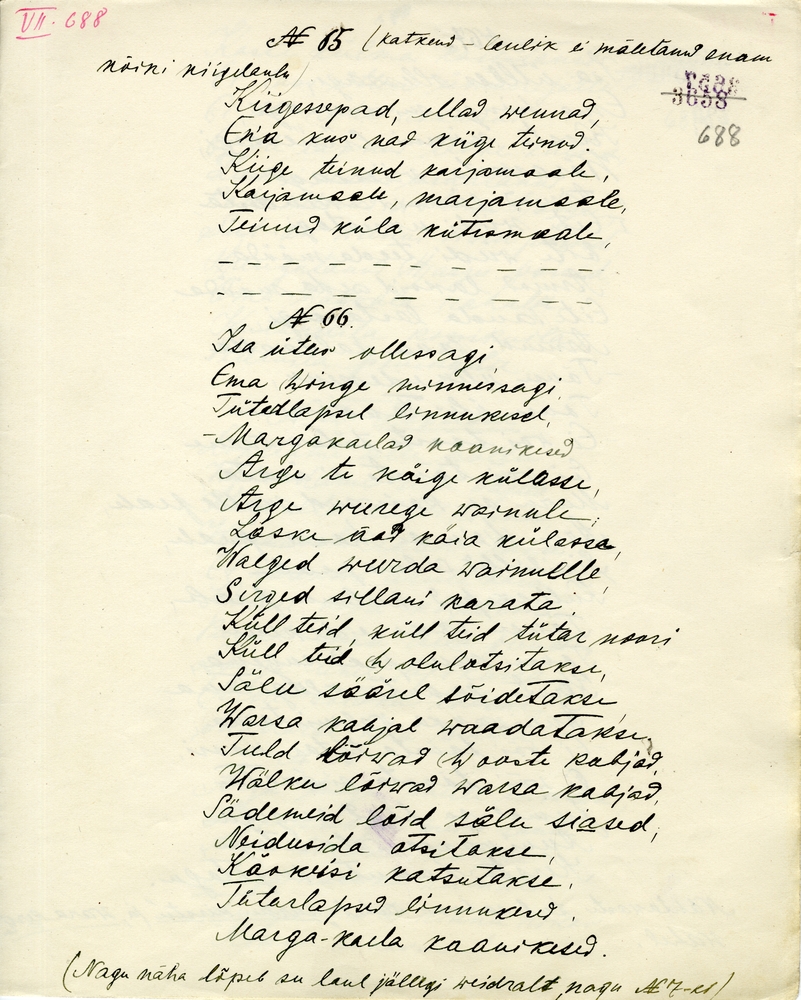 VII. 688
№ 65 (katkend - laulik ei mäletanud enam
mõini kiigelaulu)
3658
688
Kiigessepad, ellad wennad,
Ena kus nad kiige teinud.
Kiige teinud karjamaale,
Karjamaale, marjamaale,
Teinud küla kütismaale,
№ 66.
Isa ütles ollessagi,
Ema hinge minnessagi,
Tütarlapsed linnukesed,
-Margakaelad kaanikesed
Arge te käige külasse,
Arge weerege wainule,
Laske nad käia külassa,
Walged weerda wainulle,
Sirged sillani karata.
Küll teid, küll teid tütar noori
Küll teid (h)olulotsitakse,
Sälu säärel sõidetakse
Warsa kabjal waadatakse,
Tuld lõiwad (h)ooste kabjad,
Wälku lõiwad warsa kabjad,
Sädemeid lõid sälu siased,
Neidusida otsitakse,
Käokeisi katsutakse.
Tütarlapsed linnukesed,
Marga-kaela kaanikesed.
(Nagu näha lõpeb su laul jällegi weidralt, nagu № 7-es)